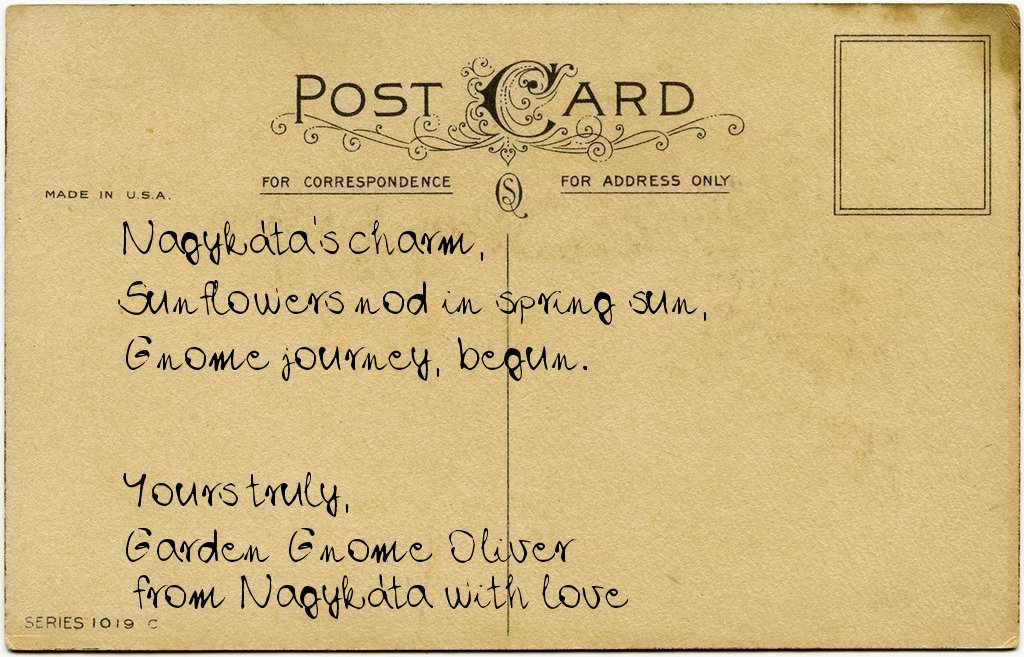 POST CARD
FOR CORRESPONDENCE
FOR ADDRESS ONLY
MADE IN U.S.A.
Nagykáta's charm,
Sunflowers nod in spring sun,
Gnome journey, begun.
Yours truly,
Garden Gnome Oliver
from Nagykáta with love
SERIES 1019 C